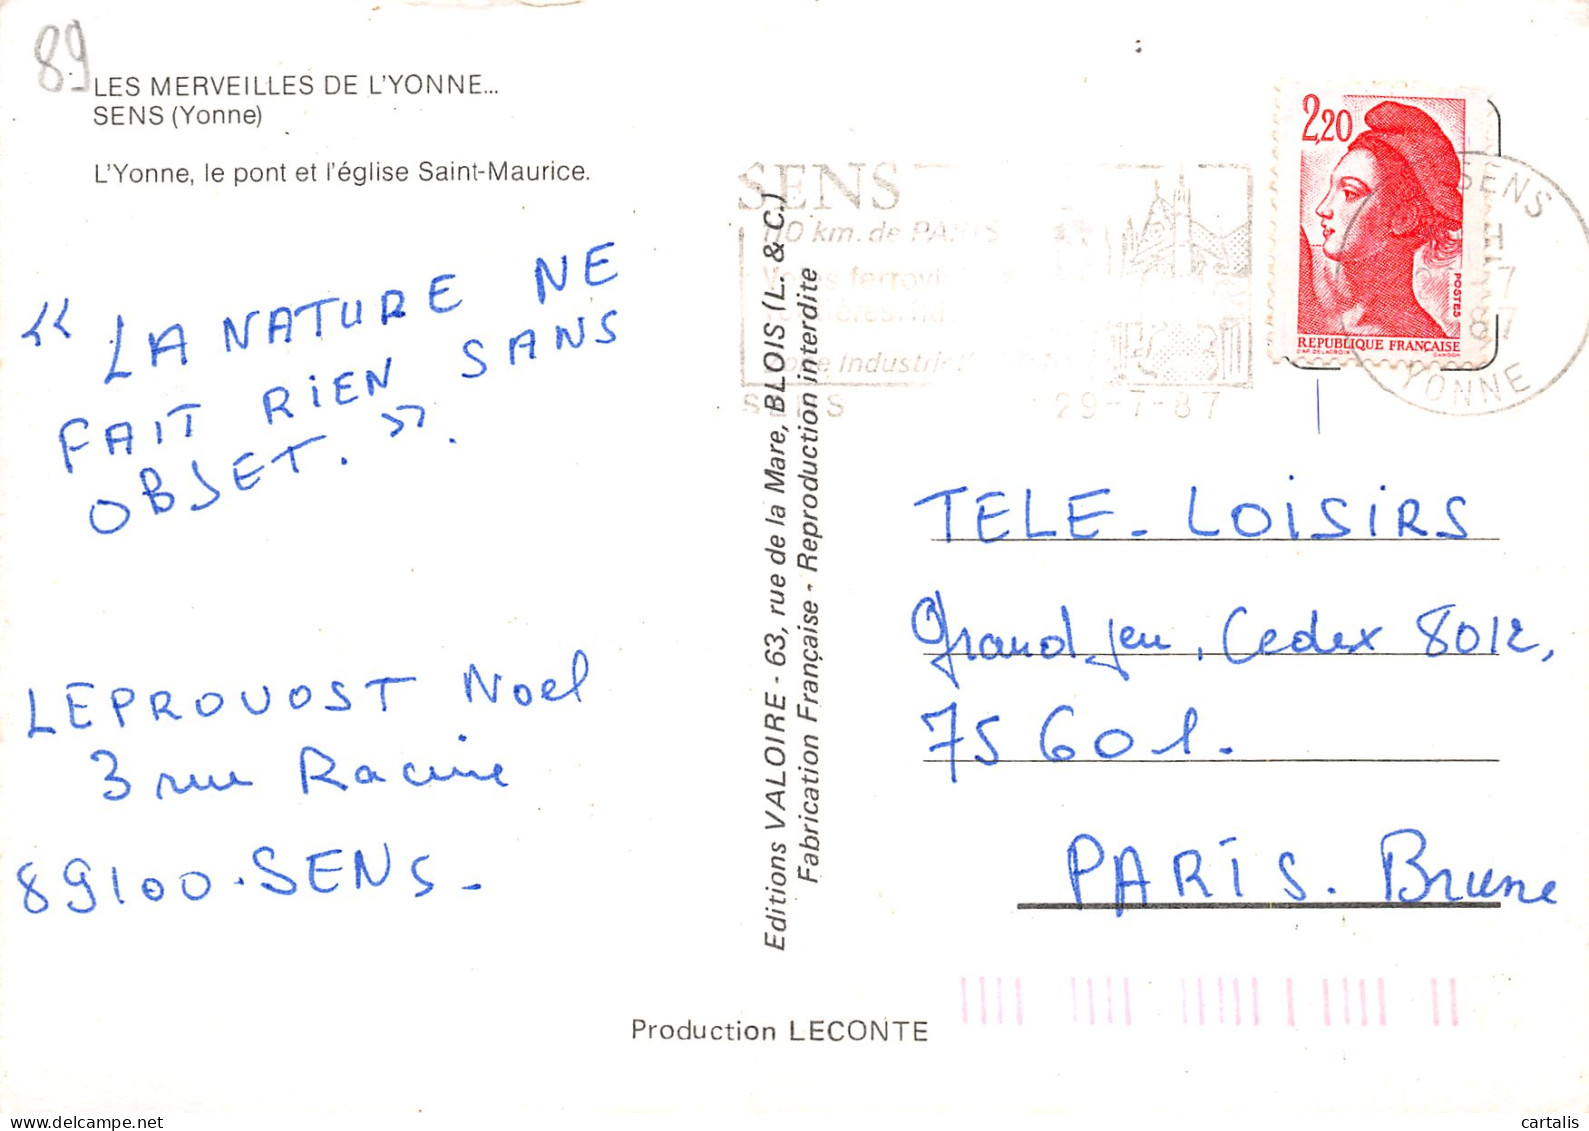 89
LES MERVEILLES DE L'YONNE...
SENS (Yonne)
L'Yonne, le pont et l'église Saint-Maurice.
« LA NATURE NE
FAIT RIEN SANS
OBJET. ».
LEPROUOST Noel
3 rue Racine
89100. SENS -
Editions VALOIRE - 63, rue de la Mare, BLOIS (L. & C.)
Fabrication Française - Reproduction interdite
Production LECONTE
SENS
110 km. de PARIS
SENS 29-7-87
2,20
POSTES
REPUBLIQUE FRANÇAISE
D'AP. DELACROIX GANDON
SENS
H
87
YONNE
TELE - LOISIRS
Grand jeu, Cedex 8012,
75601.
PARIS. Brune
delcampe.net
cartalis